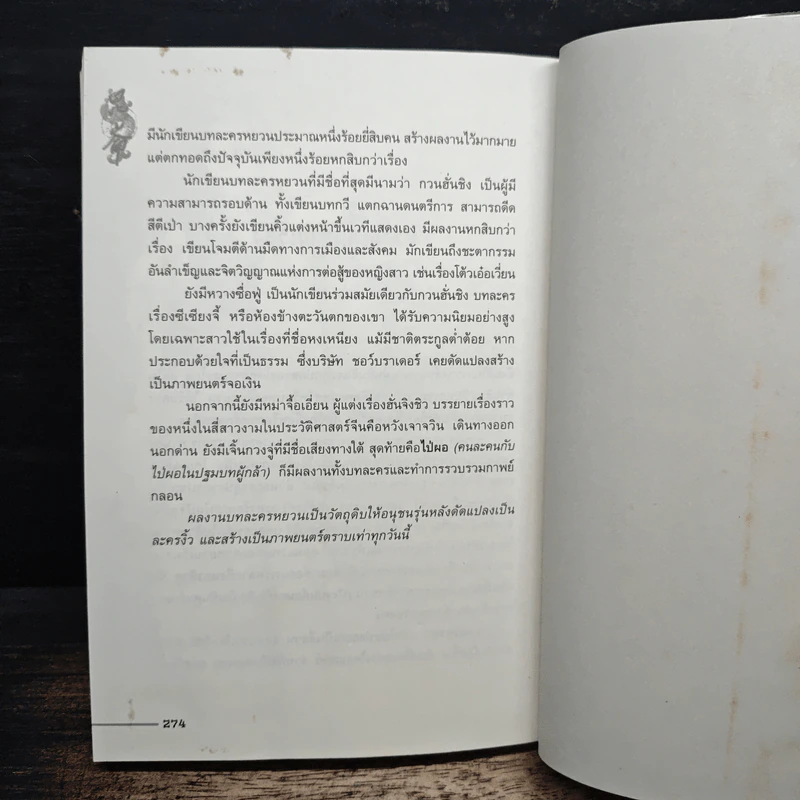 มีนักเขียนบทละครหยวนประมาณหนึ่งร้อยยี่สิบคน สร้างผลงานไว้มากมาย
แต่ตกทอดถึงปัจจุบันเพียงหนึ่งร้อยหกสิบกว่าเรื่อง
นักเขียนบทละครหยวนที่มีชื่อที่สุดมีนามว่า กวนฮั่นชิง เป็นผู้มี
ความสามารถรอบด้าน ทั้งเขียนบทกวี แตกฉานดนตรีการ สามารถดีด
สีตีเป่า บางครั้งยังเขียนคิ้วแต่งหน้าขึ้นเวทีแสดงเอง มีผลงานหกสิบกว่า
เรื่อง เขียนโจมตีด้านมืดทางการเมืองและสังคม มักเขียนถึงชะตากรรม
อันลำเข็ญและจิตวิญญาณแห่งการต่อสู้ของหญิงสาว เช่นเรื่องโต้วเอ๋อเวี่ยน
ยังมีหวางซื่อฟู่ เป็นนักเขียนร่วมสมัยเดียวกับกวนฮั่นชิง บทละคร
เรื่องซีเซียงจี้ หรือห้องข้างตะวันตกของเขา ได้รับความนิยมอย่างสูง
โดยเฉพาะสาวใช้ในเรื่องที่ชื่อหงเหนียง แม้มีชาติตระกูลต่ำต้อย หาก
ประกอบด้วยใจที่เป็นธรรม ซึ่งบริษัท ชอว์บราเดอร์ เคยดัดแปลงสร้าง
เป็นภาพยนตร์จอเงิน
นอกจากนี้ยังมีหม่าจื้อเอี่ยน ผู้แต่งเรื่องฮั่นจิงชิว บรรยายเรื่องราว
ของหนึ่งในสี่สาวงามในประวัติศาสตร์จีนคือหวังเจาจวิน เดินทางออก
นอกด่าน ยังมีเจิ้นกวงจู่ที่มีชื่อเสียงทางใต้ สุดท้ายคือไป่ผอ (คนละคนกับ
ไป่ผอในปฐมบทผู้กล้า) ก็มีผลงานทั้งบทละครและทำการรวบรวมกาพย์
กลอน
ผลงานบทละครหยวนเป็นวัตถุดิบให้อนุชนรุ่นหลังดัดแปลงเป็น
ละครงิ้ว และสร้างเป็นภาพยนตร์ตราบเท่าทุกวันนี้
274